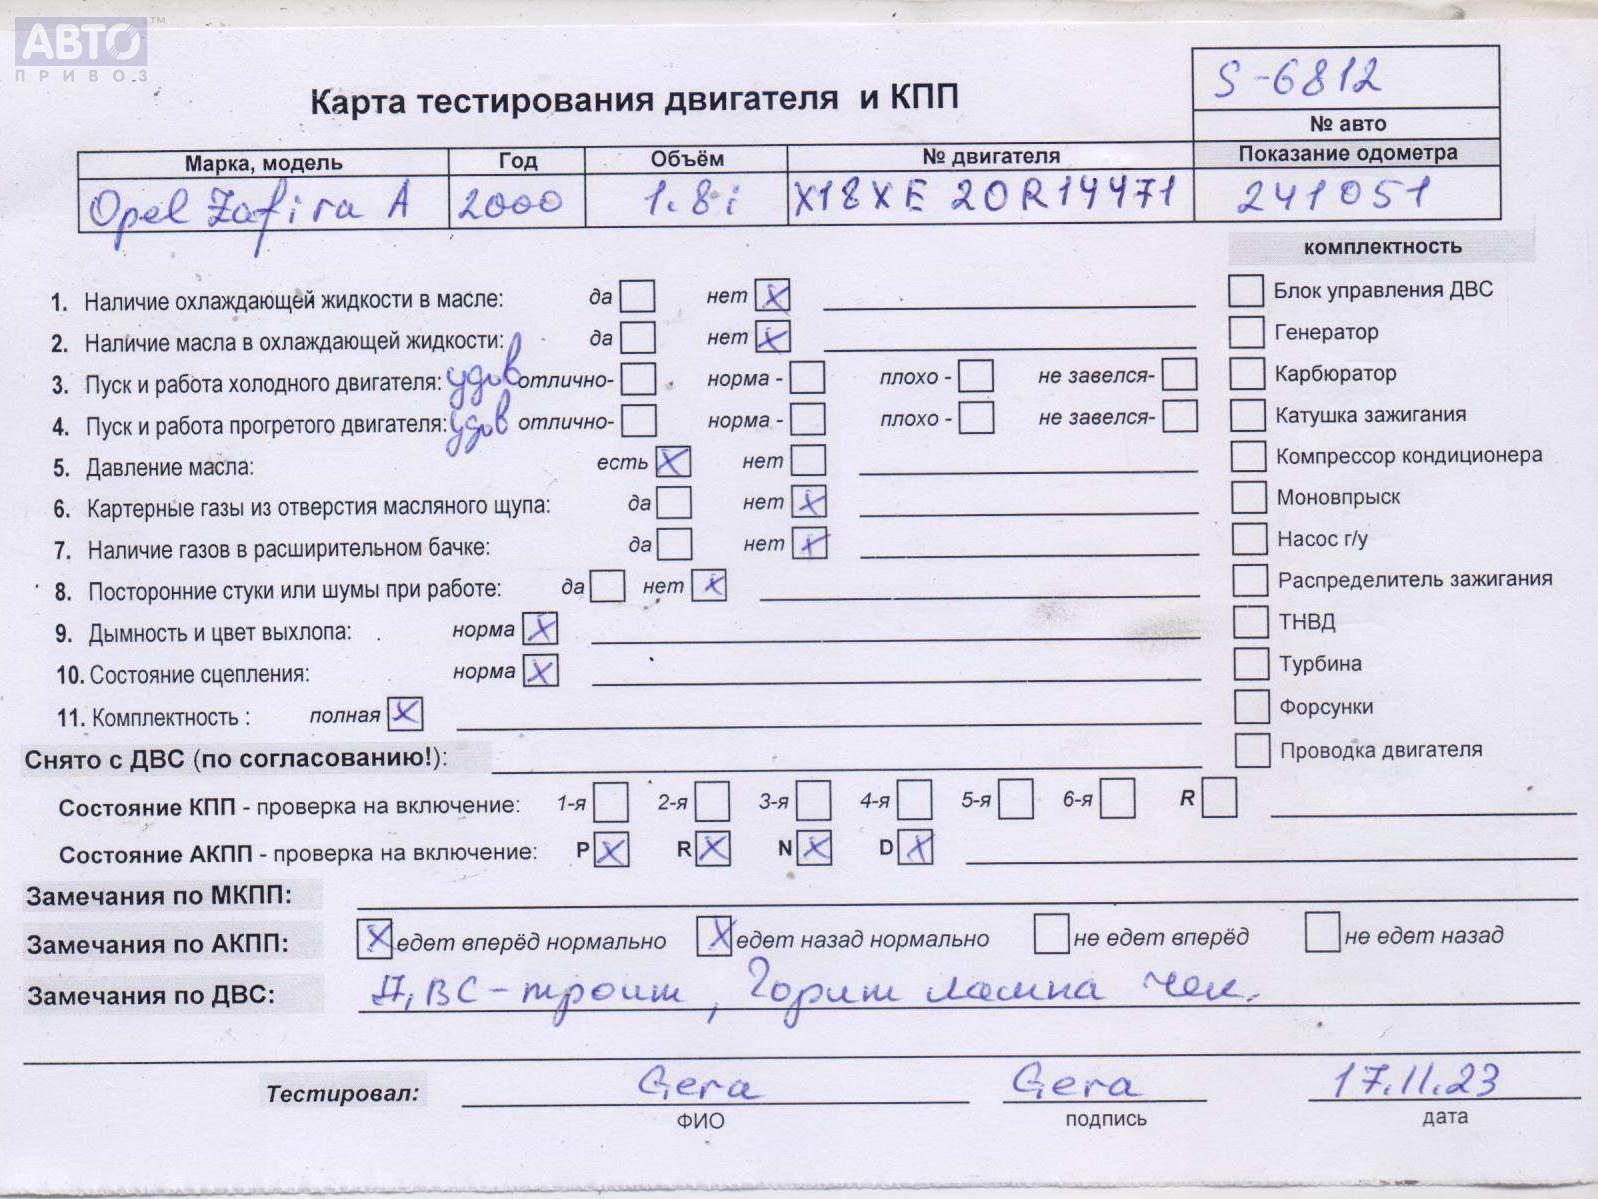 АВТО™
ПРИВОЗ
S-6812
Карта тестирования двигателя и КПП
№ авто
Марка, модель Год Объём № двигателя Показание одометра
Opel Zafira A 2000 1.8i X18XE 20R14471 241051
комплектность
1. Наличие охлаждающей жидкости в масле: да нет X
Блок управления ДВС
2. Наличие масла в охлаждающей жидкости: да нет X
Генератор
3. Пуск и работа холодного двигателя: удов отлично- норма - плохо - не завелся-
Карбюратор
4. Пуск и работа прогретого двигателя: удов отлично- норма - плохо - не завелся-
Катушка зажигания
5. Давление масла: есть X нет
Компрессор кондиционера
6. Картерные газы из отверстия масляного щупа: да нет X
Моновпрыск
7. Наличие газов в расширительном бачке: да нет X
Насос г/у
8. Посторонние стуки или шумы при работе: да нет X
Распределитель зажигания
9. Дымность и цвет выхлопа: норма X
ТНВД
10. Состояние сцепления: норма X
Турбина
11. Комплектность : полная X
Форсунки
Снято с ДВС (по согласованию!):
Проводка двигателя
Состояние КПП - проверка на включение: 1-я 2-я 3-я 4-я 5-я 6-я R
Состояние АКПП - проверка на включение: P X R X N X D X
Замечания по МКПП:
Замечания по АКПП: X едет вперёд нормально X едет назад нормально не едет вперёд не едет назад
Замечания по ДВС: ДВС - троит, Горит лампа чек.
Тестировал: Gera Gera 17.11.23
ФИО подпись дата